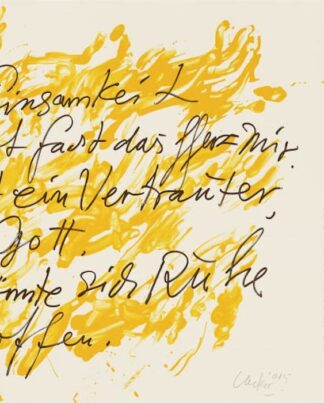 insamkeit
t fast das Herz mir.
ein Vertrauter,
Gott.
nnte sich Ruhe
offen.
Uecker